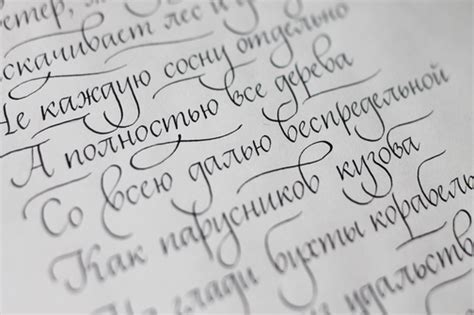 етер,
скачивает лес и
Не каждую сосну отдельно
А полностью все дерева
Со всею далью беспредельной
Как парусников кузова
На глади бухты корабель
удальств